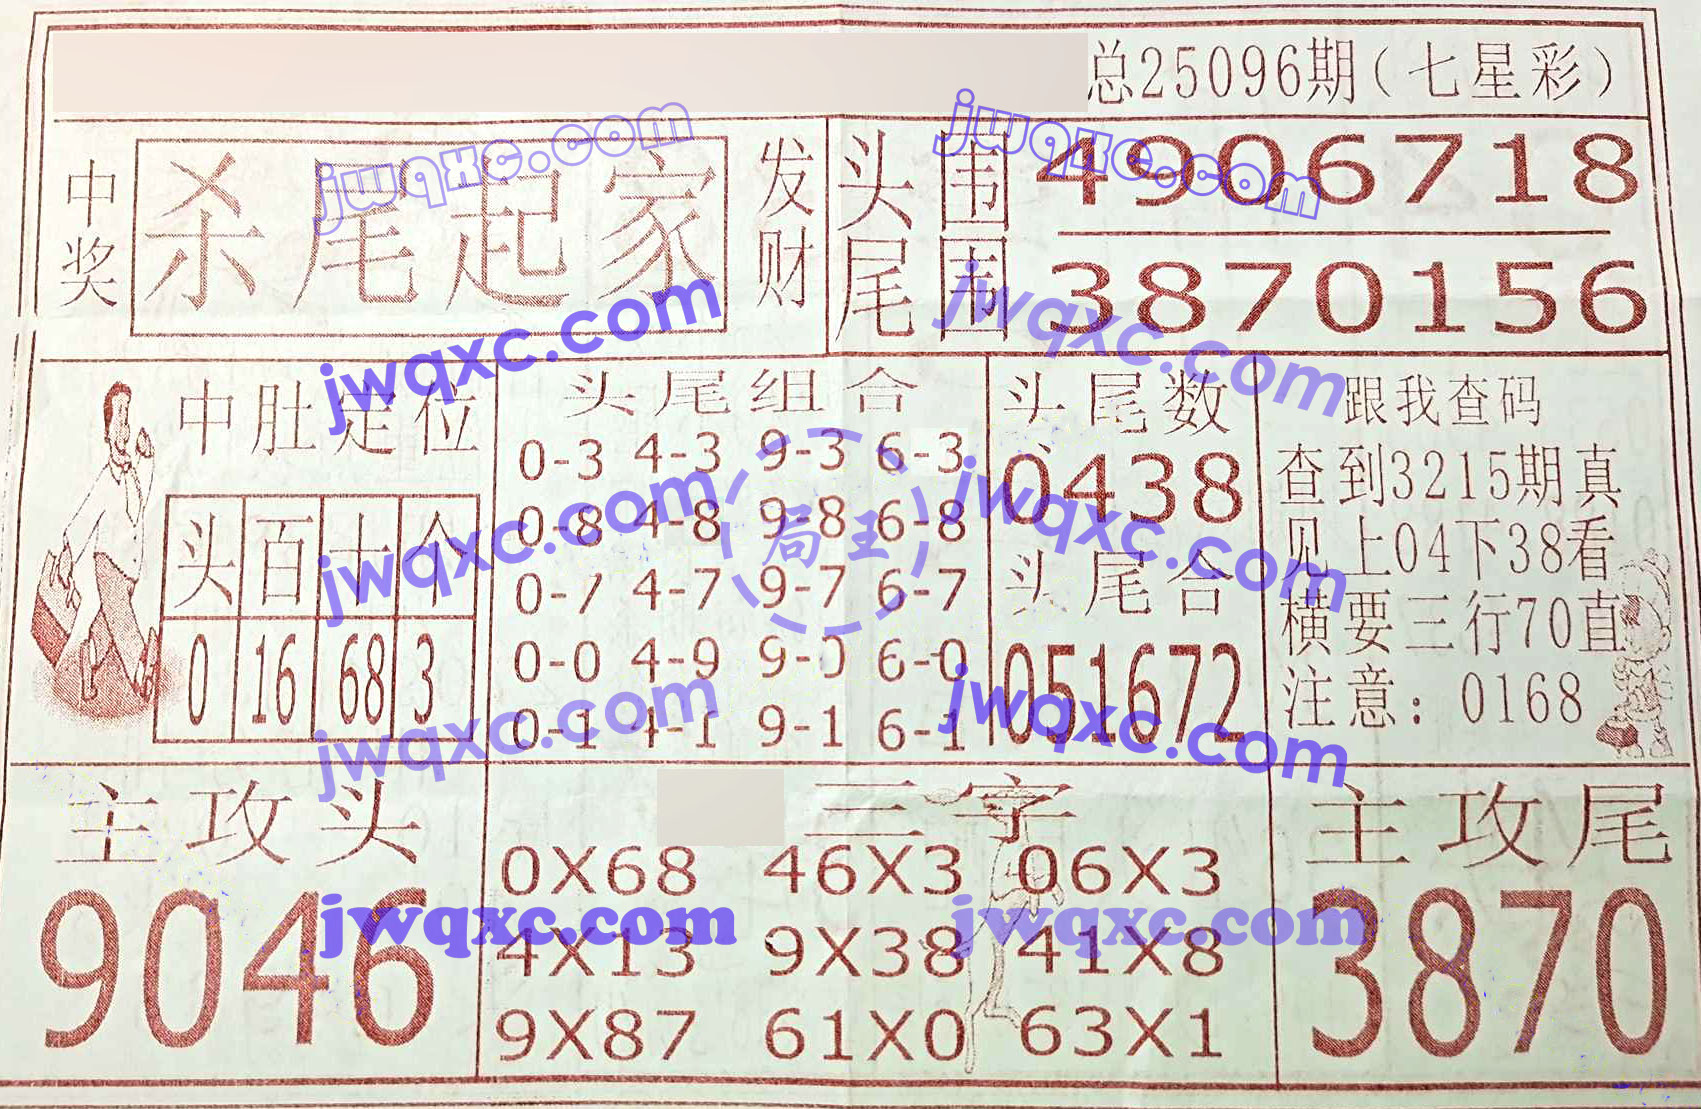 总25096期(七星彩)
中奖
杀尾起家
发财
头尾
围围
4906718
3870156
中肚定位
头 百 十 个
0 16 68 3
头尾组合
0-3 4-3 9-3 6-3
0-8 4-8 9-8 6-8
0-7 4-7 9-7 6-7
0-0 4-9 9-0 6-0
0-1 4-1 9-1 6-1
头尾数
0438
头尾合
051672
跟我查码
查到3215期真
见上04下38看
横要三行70直
注意：0168
主攻头
9046
三字
0X68 46X3 06X3
4X13 9X38 41X8
9X87 61X0 63X1
主攻尾
3870
jwqxc.com
jwqxc.com
jwqxc.com
jwqxc.com
jwqxc.com
jwqxc.com
局王
jwqxc.com
jwqxc.com
jwqxc.com
jwqxc.com